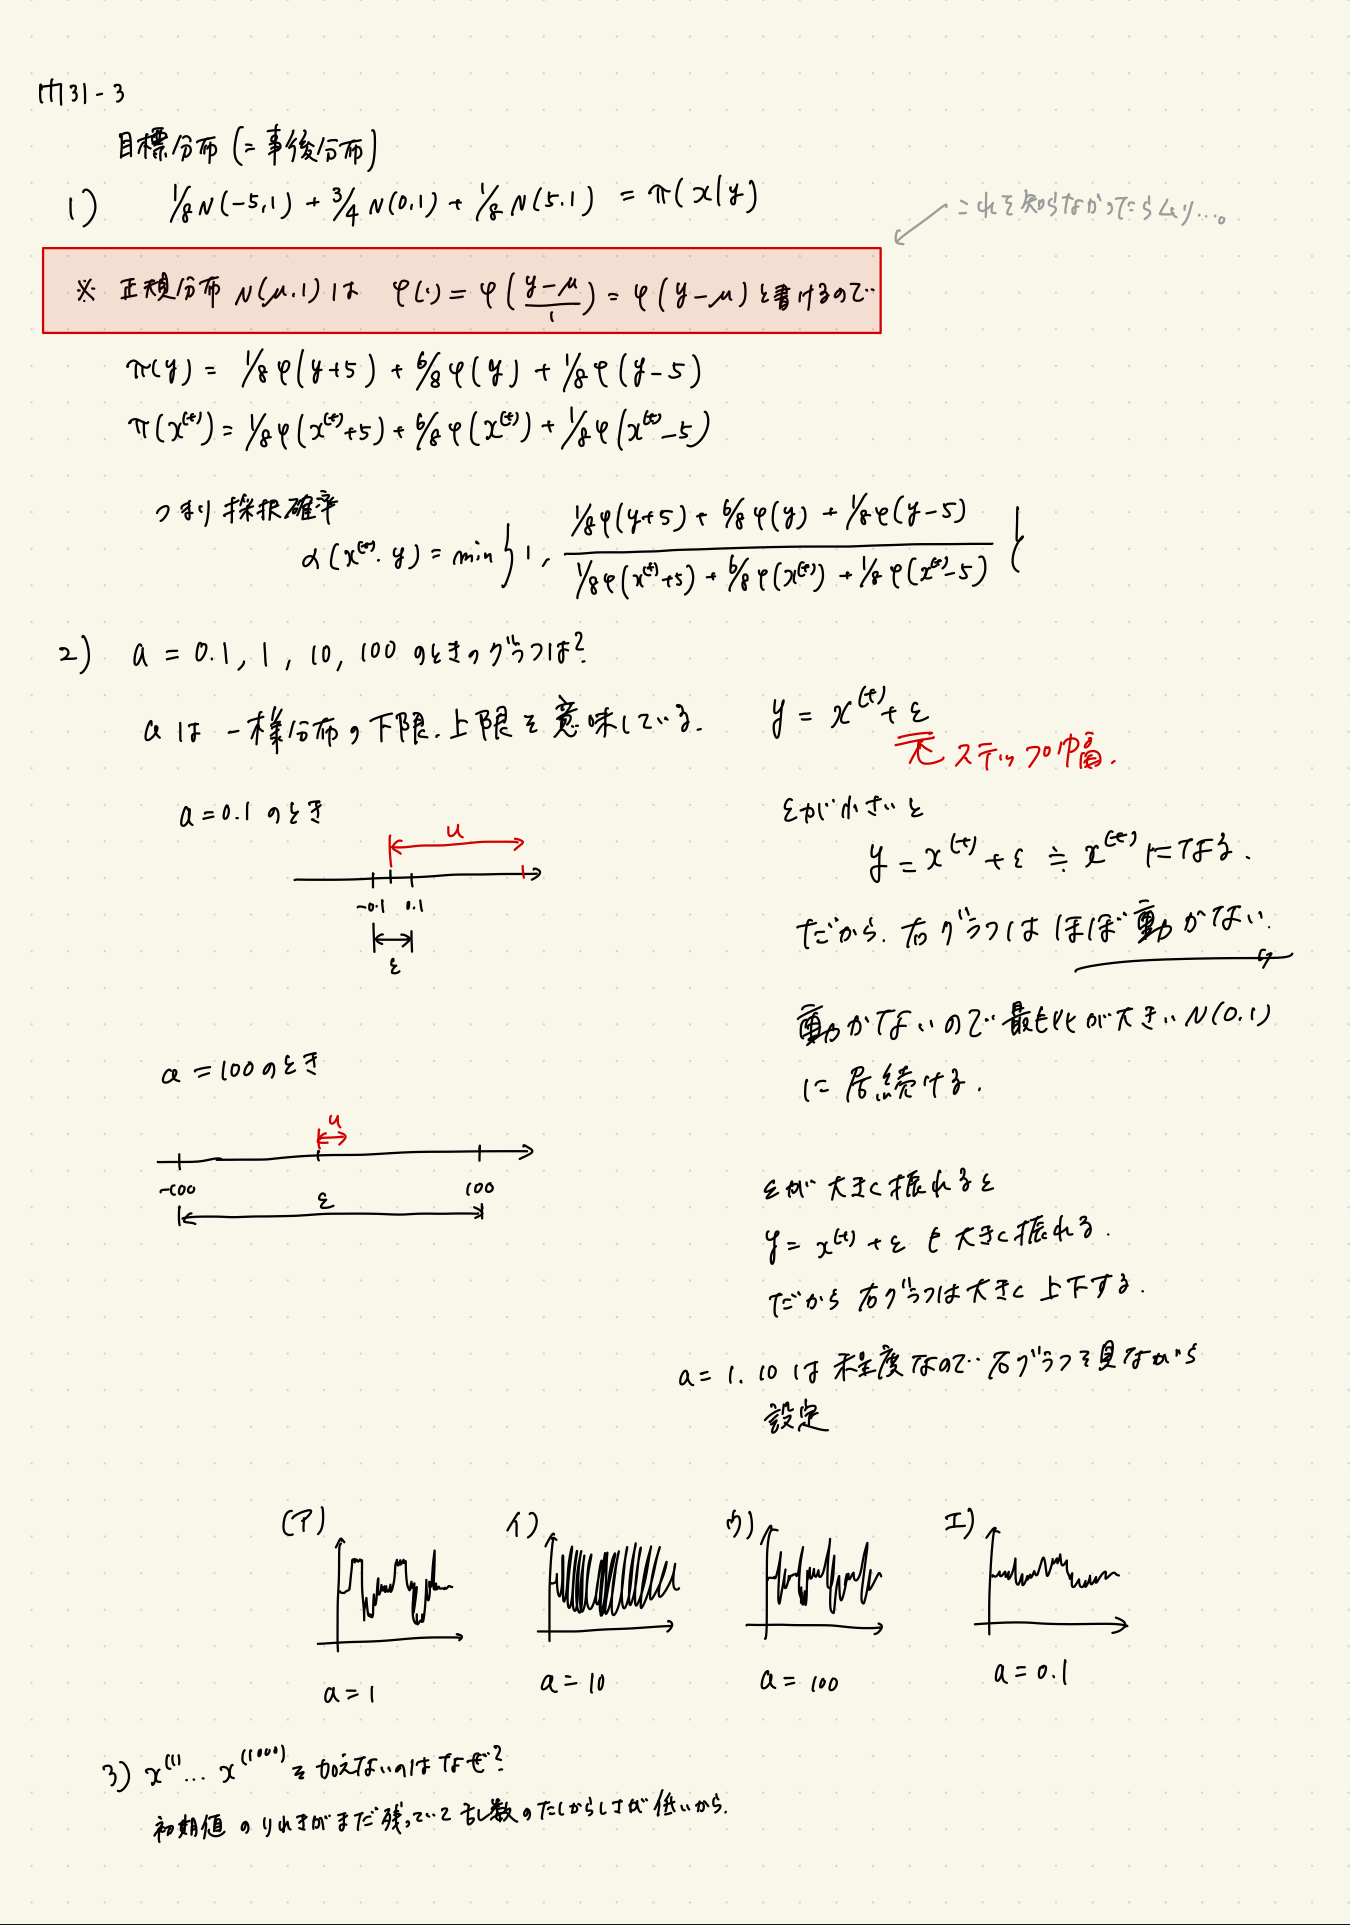 問31-3
目標分布(=事後分布)
1) 1/8 N(-5,1) + 3/4 N(0.1) + 1/8 N(5.1) = π(x|y)
これを知らなかったらムリ…。
※ 正規分布 N(μ.1)は φ(・) = φ((y-μ)/1) = φ(y-μ)と書けるので…
π(y) = 1/8 φ(y+5) + 6/8 φ(y) + 1/8 φ(y-5)
π(x^(t)) = 1/8 φ(x^(t)+5) + 6/8 φ(x^(t)) + 1/8 φ(x^(t)-5)
つまり採択確率
α(x^(t). y) = min { 1, (1/8 φ(y+5) + 6/8 φ(y) + 1/8 φ(y-5)) / (1/8 φ(x^(t)+5) + 6/8 φ(x^(t)) + 1/8 φ(x^(t)-5)) }
2) a = 0.1, 1, 10, 100 のときのグラフは?
aは一様分布の下限.上限を意味している.
y = x^(t) + ε
ステップ幅.
a = 0.1 のとき
u
-0.1 0.1
ε
εが小さいと
y = x^(t) + ε ≒ x^(t) になる.
だから.右グラフはほぼ動かない.
動かないので最も比が大きいN(0.1)
に居続ける.
a = 100のとき
u
-100 100
ε
εが大きく振れると
y = x^(t) + ε も大きく振れる.
だから右グラフは大きく上下する.
a = 1. 10 は程度なので…右グラフを見ながら
設定
(ア) イ) ウ) エ)
a = 1 a = 10 a = 100 a = 0.1
3) x^(1)… x^(1000) を加えないのはなぜ?
初期値のりれきがまだ残っていて乱数のたしからしさが低いから.